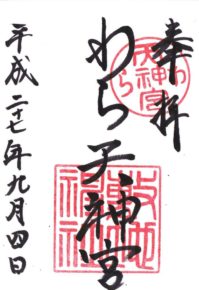 奉拝
わら天神宮
わら天神宮
敷地
神社
平成二十七年九月四日